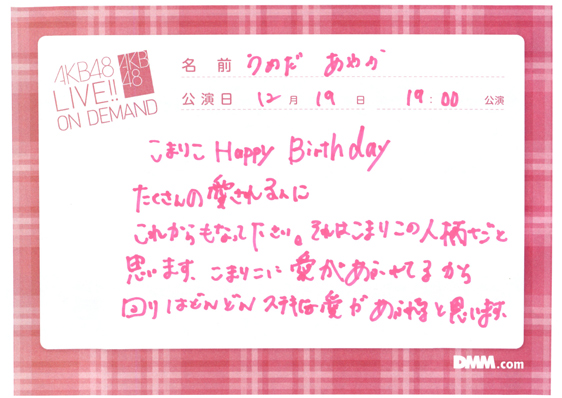 AKB48
LIVE!!
ON DEMAND
AKB
48
名前 うめだ あやか
公演日 12月19日 19:00 公演
こまりこ Happy Birthday
たくさんの愛される人に
これからもなって下さい。それはこまりこの人柄だと
思います、こまりこに愛があふれてるから
回りはどんどんステキな愛があふれると思います、
DMM.com